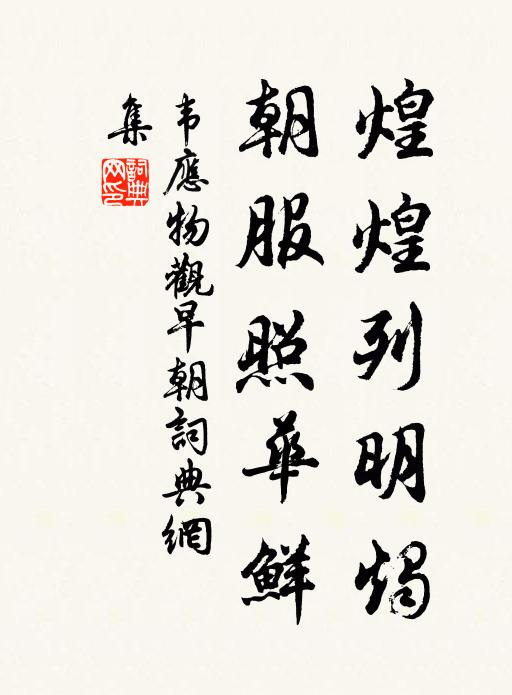 煌煌列明燭
朝服照華鮮
韦應物觀早朝詞典網
集
詞典網印